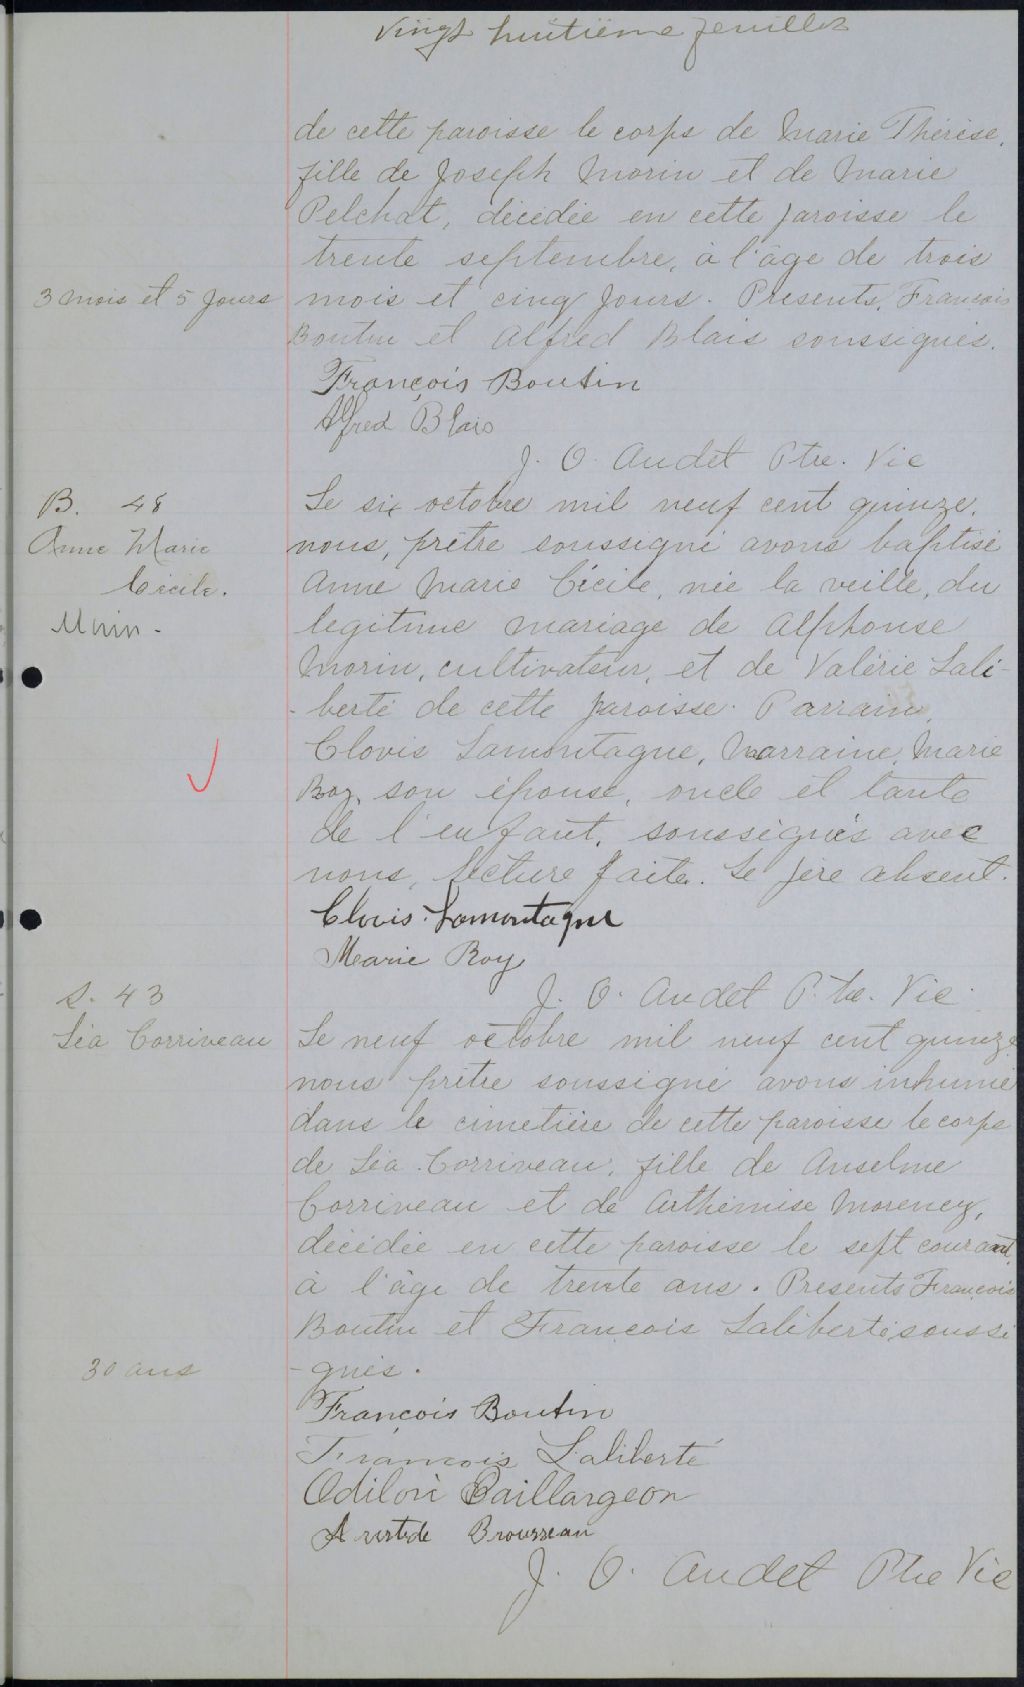 Vingt huitième feuillet
de cette paroisse le corps de Marie Thérèse,
fille de Joseph Morin et de Marie
Pelchat, décédée en cette paroisse le
trente septembre, à l'âge de trois
3 mois et 5 jours
mois et cinq jours. Présents, François
Boutin et Alfred Blais soussignés.
François Boutin
Alfred Blais
J. O. Audet Ptre. Vic
B. 48
Anne Marie
Cécile.
Morin.
Le six octobre mil neuf cent quinze,
nous, prêtre soussigné avons baptisé
Anne Marie Cécile, née la veille, du
légitime mariage de Alphonse
Morin, cultivateur, et de Valérie Lali-
-berté de cette paroisse. Parrain,
Clovis Lamontagne, Marraine, Marie
Roy, son épouse, oncle et tante
de l'enfant, soussignés avec
nous, lecture faite. Le père absent.
Clovis Lamontagne
Marie Roy
J. O. Audet Ptre. Vic.
S. 43
Léa Corriveau
Le neuf octobre mil neuf cent quinze
nous prêtre soussigné avons inhumé
dans le cimetière de cette paroisse le corps
de Léa Corriveau, fille de Anselme
Corriveau et de Arthémise Morency,
décédée en cette paroisse le sept courant
à l'âge de trente ans. Présents François
Boutin et François Laliberté soussi
30 ans
-gnés.
François Boutin
François Laliberté
Odilon Baillargeon
Aristide Brousseau
J. O. Audet Ptre Vic